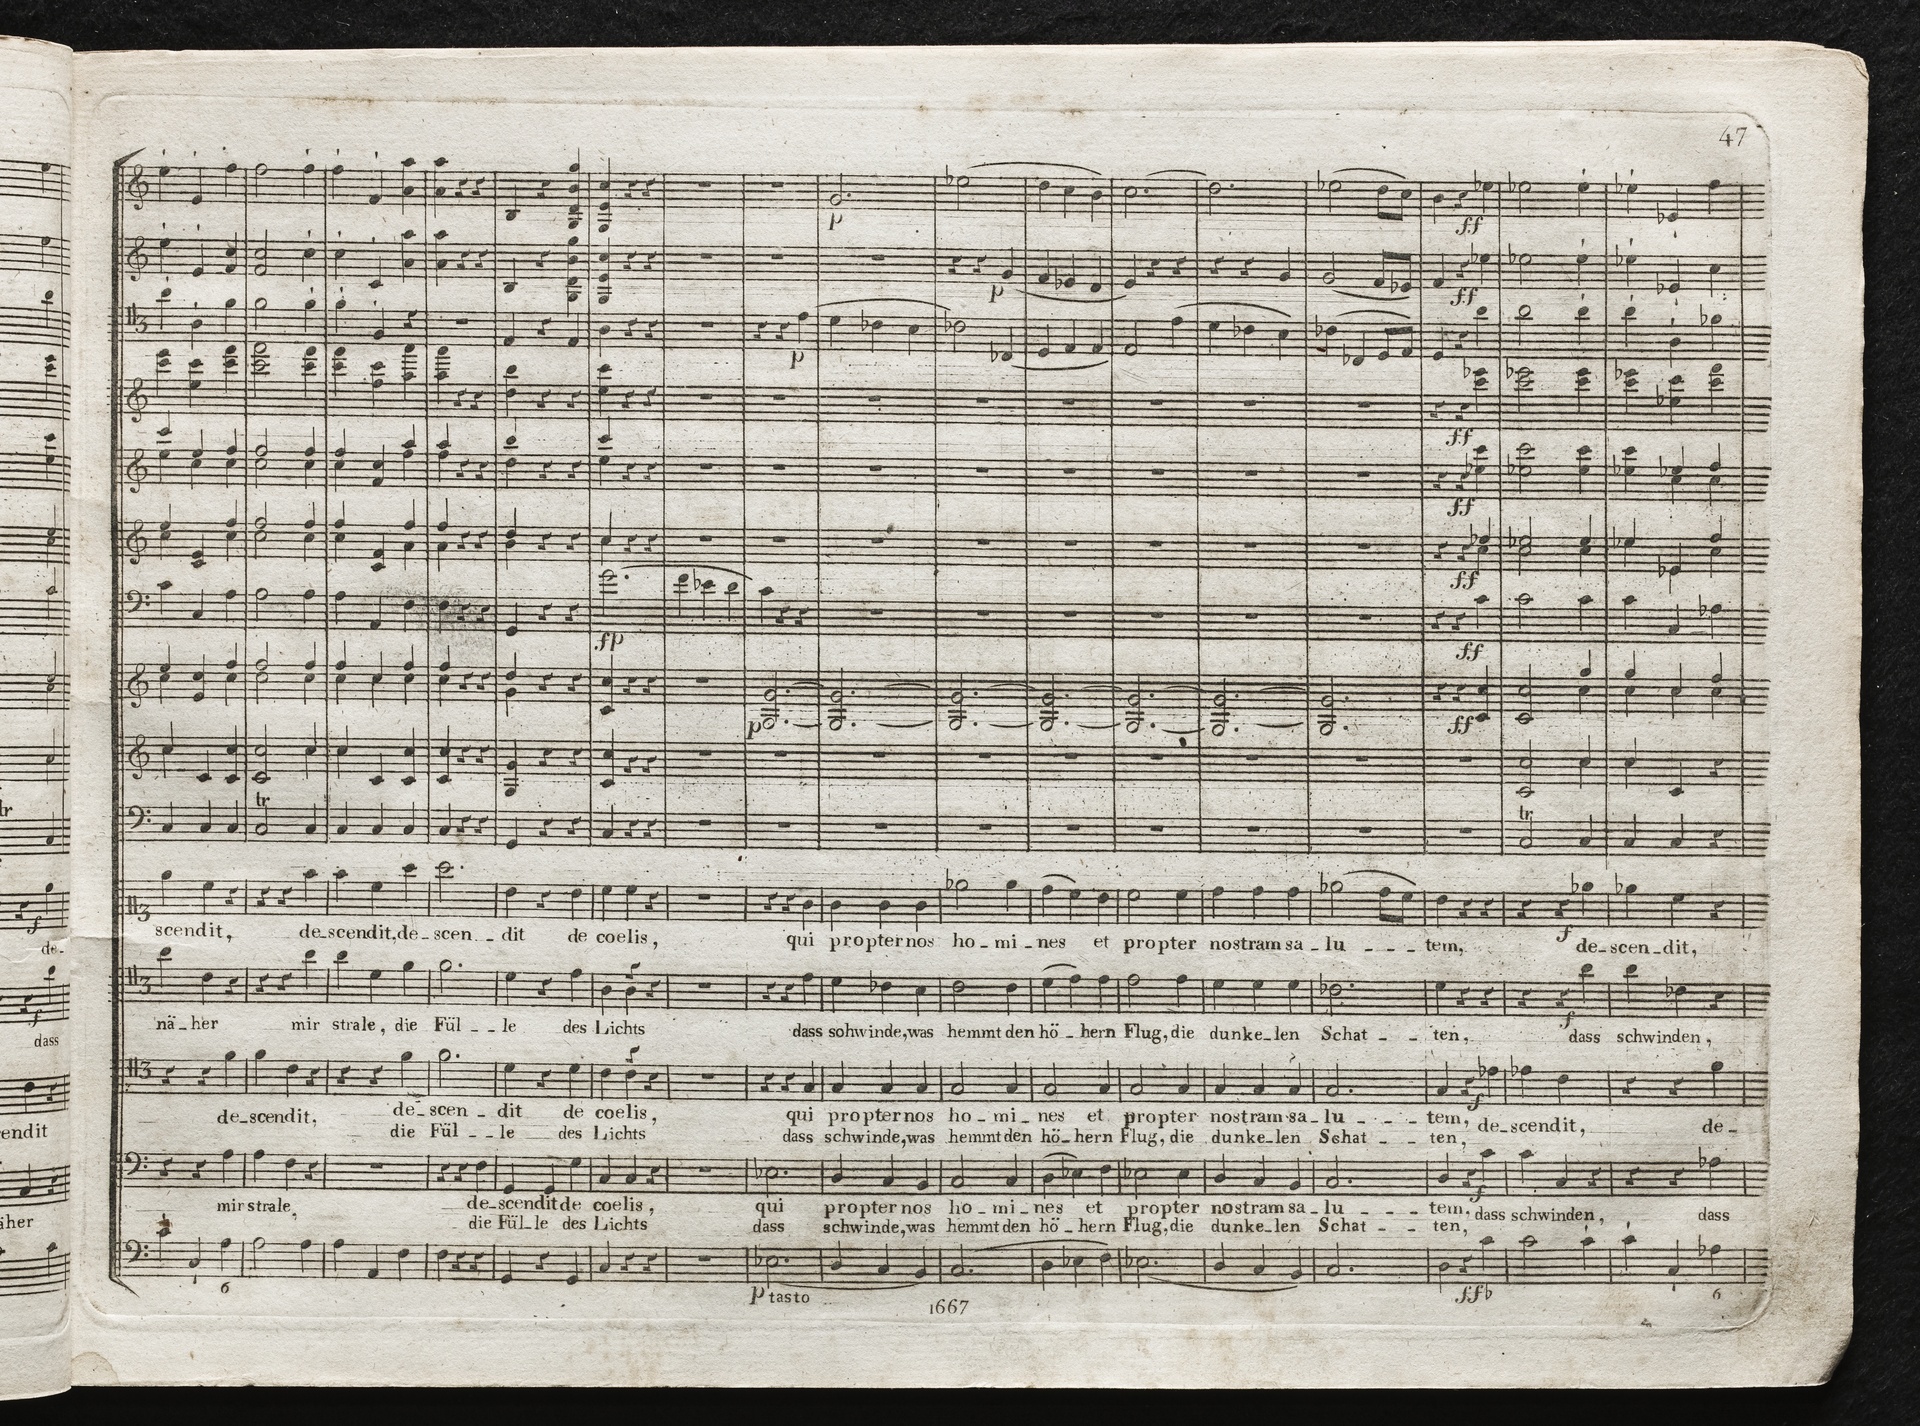 47
p
ff
p
ff
p
ff
ff
ff
fp
ff
p
ff
tr
tr
scendit, de_scendit,de_scen_ _dit de coelis, qui propter nos ho_mi_nes et propter nostram sa_lu _ _ _ tem, f de_scen_dit,
nä_her mir strale, die Fül_ _le des Lichts dass sohwinde,was hemmt den hö_hern Flug,die dunke_len Schat _ _ ten, f dass schwinden,
de_scendit, de_scen_dit de coelis, qui propter nos ho_mi_nes et propter nostram sa_lu _ _ _ tem, f de_scendit, de_
die Fül_ _le des Lichts dass schwinde,was hemmt den hö_hern Flug,die dunke_len Schat _ _ ten,
mir strale, de_scendit de coelis, qui propter nos ho_mi_nes et propter nostram sa_lu _ _ _ tem, f dass schwinden, dass
die Fül_le des Lichts dass schwinde,was hemmt den hö_hern Flug,die dunke_len Schat _ _ ten,
6 p tasto ffb 6
1667
tr
f
de_
f
dass
endit
äher